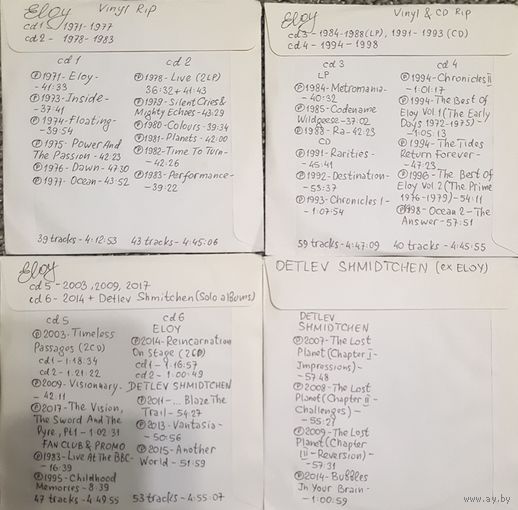 Eloy Vinyl Rip
cd1 - 1971-1977
cd2 - 1978-1983
cd1
Ⓟ1971-Eloy-
-41:33
Ⓟ1973-Inside-
-37:41
Ⓟ1974-Floating-
-39:54
Ⓟ1975-Power And
The Passion-42:23
Ⓟ1976-Dawn-47:30
Ⓟ1977-Ocean-43:52
39 tracks-4:12:53
cd2
Ⓟ1978-Live (2LP)
36:32+41:43
Ⓟ1979-Silent Cries &
Mighty Echoes-43:29
Ⓟ1980-Colours-39:34
Ⓟ1981-Planets-42:00
Ⓟ1982-Time To Turn-
-42:26
Ⓟ1983-Performance-
-39:22
43 tracks-4:45:06
Eloy Vinyl & CD Rip
cd3-1984-1988(LP), 1991-1993 (CD)
cd4-1994-1998
cd3
LP
Ⓟ1984-Metromania-
-40:32
Ⓟ1985-Codename
Wildgeese-37:02
Ⓟ1988-Ra-42:23
CD
Ⓟ1991-Rarities-
-45:41
Ⓟ1992-Destination-
-53:37
Ⓟ1993-Chronicles I-
-1:07:54
59 tracks-4:47:09
cd4
Ⓟ1994-Chronicles II
-1:01:17
Ⓟ1994-The Best Of
Eloy Vol 1 (The Early
Days 1972-1975)-
-1:05:13
Ⓟ1994-The Tides
Return Forever-
-47:23
Ⓟ1996-The Best Of
Eloy Vol 2 (The Prime
1976-1979)-54:11
Ⓟ1998-Ocean 2-The
Answer-57:51
40 tracks-4:45:55
Eloy
cd5-2003, 2009, 2017
cd6-2014+Detlev Shmitchen (Solo albums)
cd5
Ⓟ2003-Timeless
Passages (2CD)
cd1-1:18:34
cd2-1:21:22
Ⓟ2009-Visionary-
-42:11
Ⓟ2017-The Vision,
The Sword And The
Pyre, Pt1-1:02:31
FAN CLUB & PROMO
Ⓟ1983-Live At The BBC-
-16:39
Ⓟ1995-Childhood
Memories-8:39
47 tracks-4:49:55
cd6
ELOY
Ⓟ2014-Reincarnation
On Stage (2CD)
cd1-1:16:57
cd2-1:00:49
DETLEV SHMIDTCHEN
Ⓟ2011-... Blaze The
Trail-54:27
Ⓟ2013-Vantasia-
-50:56
Ⓟ2015-Another
World-51:59
53 tracks-4:55:07
DETLEV SHMIDTCHEN (ex ELOY)
DETLEV
SHMIDTCHEN
Ⓟ2007-The Lost
Planet (Chapter I-
Impressions)-
-57:48
Ⓟ2008-The Lost
Planet (Chapter II-
Challenges)-
-55:27
Ⓟ2009-The Lost
Planet (Chapter
III-Reversion)-
-57:31
Ⓟ2014-Bubbles
In Your Brain-
-1:00:59
www.ay.by